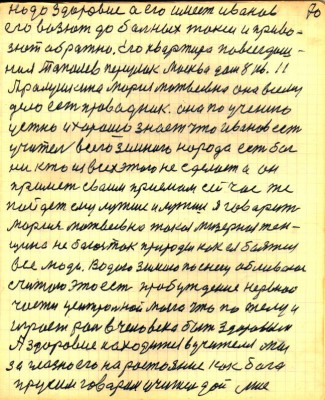 70
надо здоровие а его имеет иванов
его возют до больных такси и приво-
зют обратно, его квартира повседнев-
ная Москва дом 8 кв. 11
Мария матвеевна она всему
делу ест проводник. она по учению
и хорошо знает что иванов ест
учител всего земного народа ест бог
ни кто из всех этого не сделает а он
примет своим приемом сей час же
пойдет ему лучше и лучше я говорит
мария матвеевна такая мизерная жен-
щина не боюсь так природы как ей боятся
все люди. Водою зимою по снегу обливаюс
считаю это ест пробуждение нервной
части центральной мозга это по телу и
играет рол в человека быть здоровым
А здоровие находится в учителя мы
за глазно его на растояние как бога
просим говорим учител дай мне